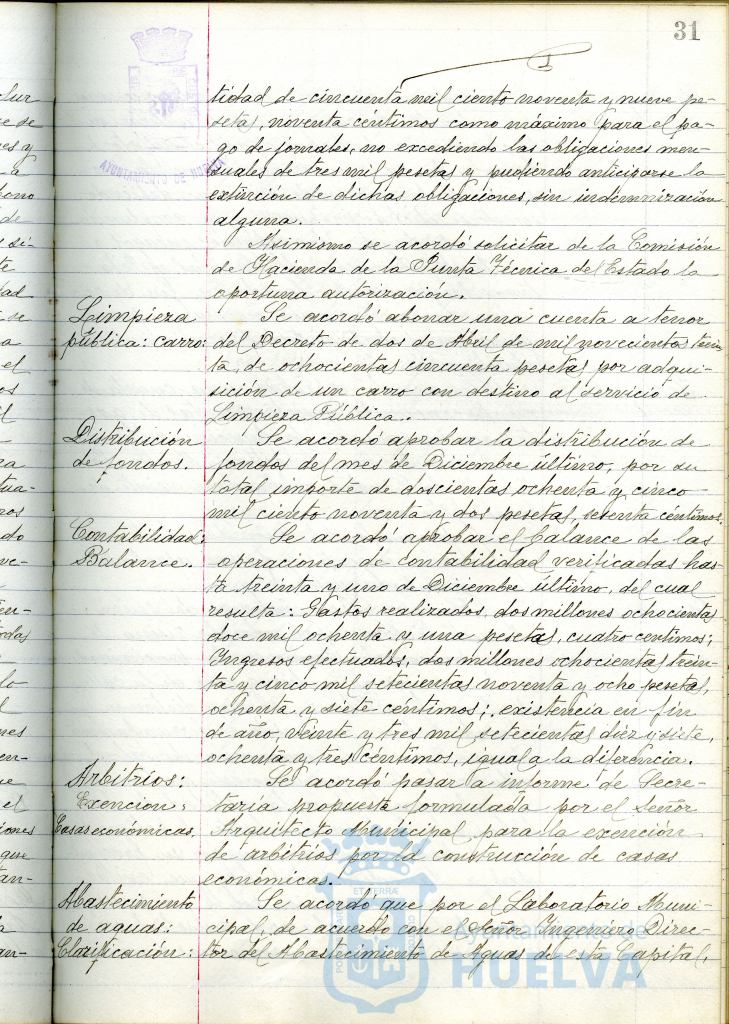 31
tidad de cincuenta mil ciento noventa y nueve pe-
setas, noventa céntimos como máximo para el pa-
go de jornales, no excediendo las obligaciones men-
suales de tres mil pesetas y pudiendo anticiparse la
extinción de dichas obligaciones, sin indemnización
alguna.
Asimismo se acordó solicitar de la Comisión
de Hacienda de la Junta Técnica del Estado la
oportuna autorización.
Limpieza
pública: carro:
Se acordó abonar una cuenta a tenor
del Decreto de dos de Abril de mil novecientos trein
ta, de ochocientas cincuenta pesetas por adqui-
sición de un carro con destino al servicio de
Limpieza Pública.
Distribución
de fondos.
Se acordó aprobar la distribución de
fondos del mes de Diciembre último, por su
total importe de doscientas ochenta y cinco
mil ciento noventa y dos pesetas, setenta céntimos.
Contabilidad:
Balance.
Se acordó aprobar el balance de las
operaciones de contabilidad verificadas has
ta treinta y uno de Diciembre último, del cual
resulta: Gastos realizados, dos millones ochocientas
doce mil ochenta y una pesetas, cuatro centimos;
Ingresos efectuados, dos millones ochocientas trein-
ta y cinco mil setecientas noventa y ocho pesetas,
ochenta y siete céntimos; existencia en fin
de año, veinte y tres mil setecientas diez y siete,
ochenta y tres céntimos, igual a la diferencia.
Arbitrios:
Exencion:
Casas económicas.
Se acordó pasar a informe de Secre-
taría propuesta formulada por el Señor
Arquitecto Municipal para la exención
de arbitrios por la construcción de casas
económicas.
Abastecimiento
de aguas:
Clarificación:
Se acordó que por el Laboratorio Muni-
cipal, de acuerdo con el Señor Ingeniero Direc-
tor del Abastecimiento de Aguas de esta Capital,
AYUNTAMIENTO DE HUELVA
Ayuntamiento de
HUELVA